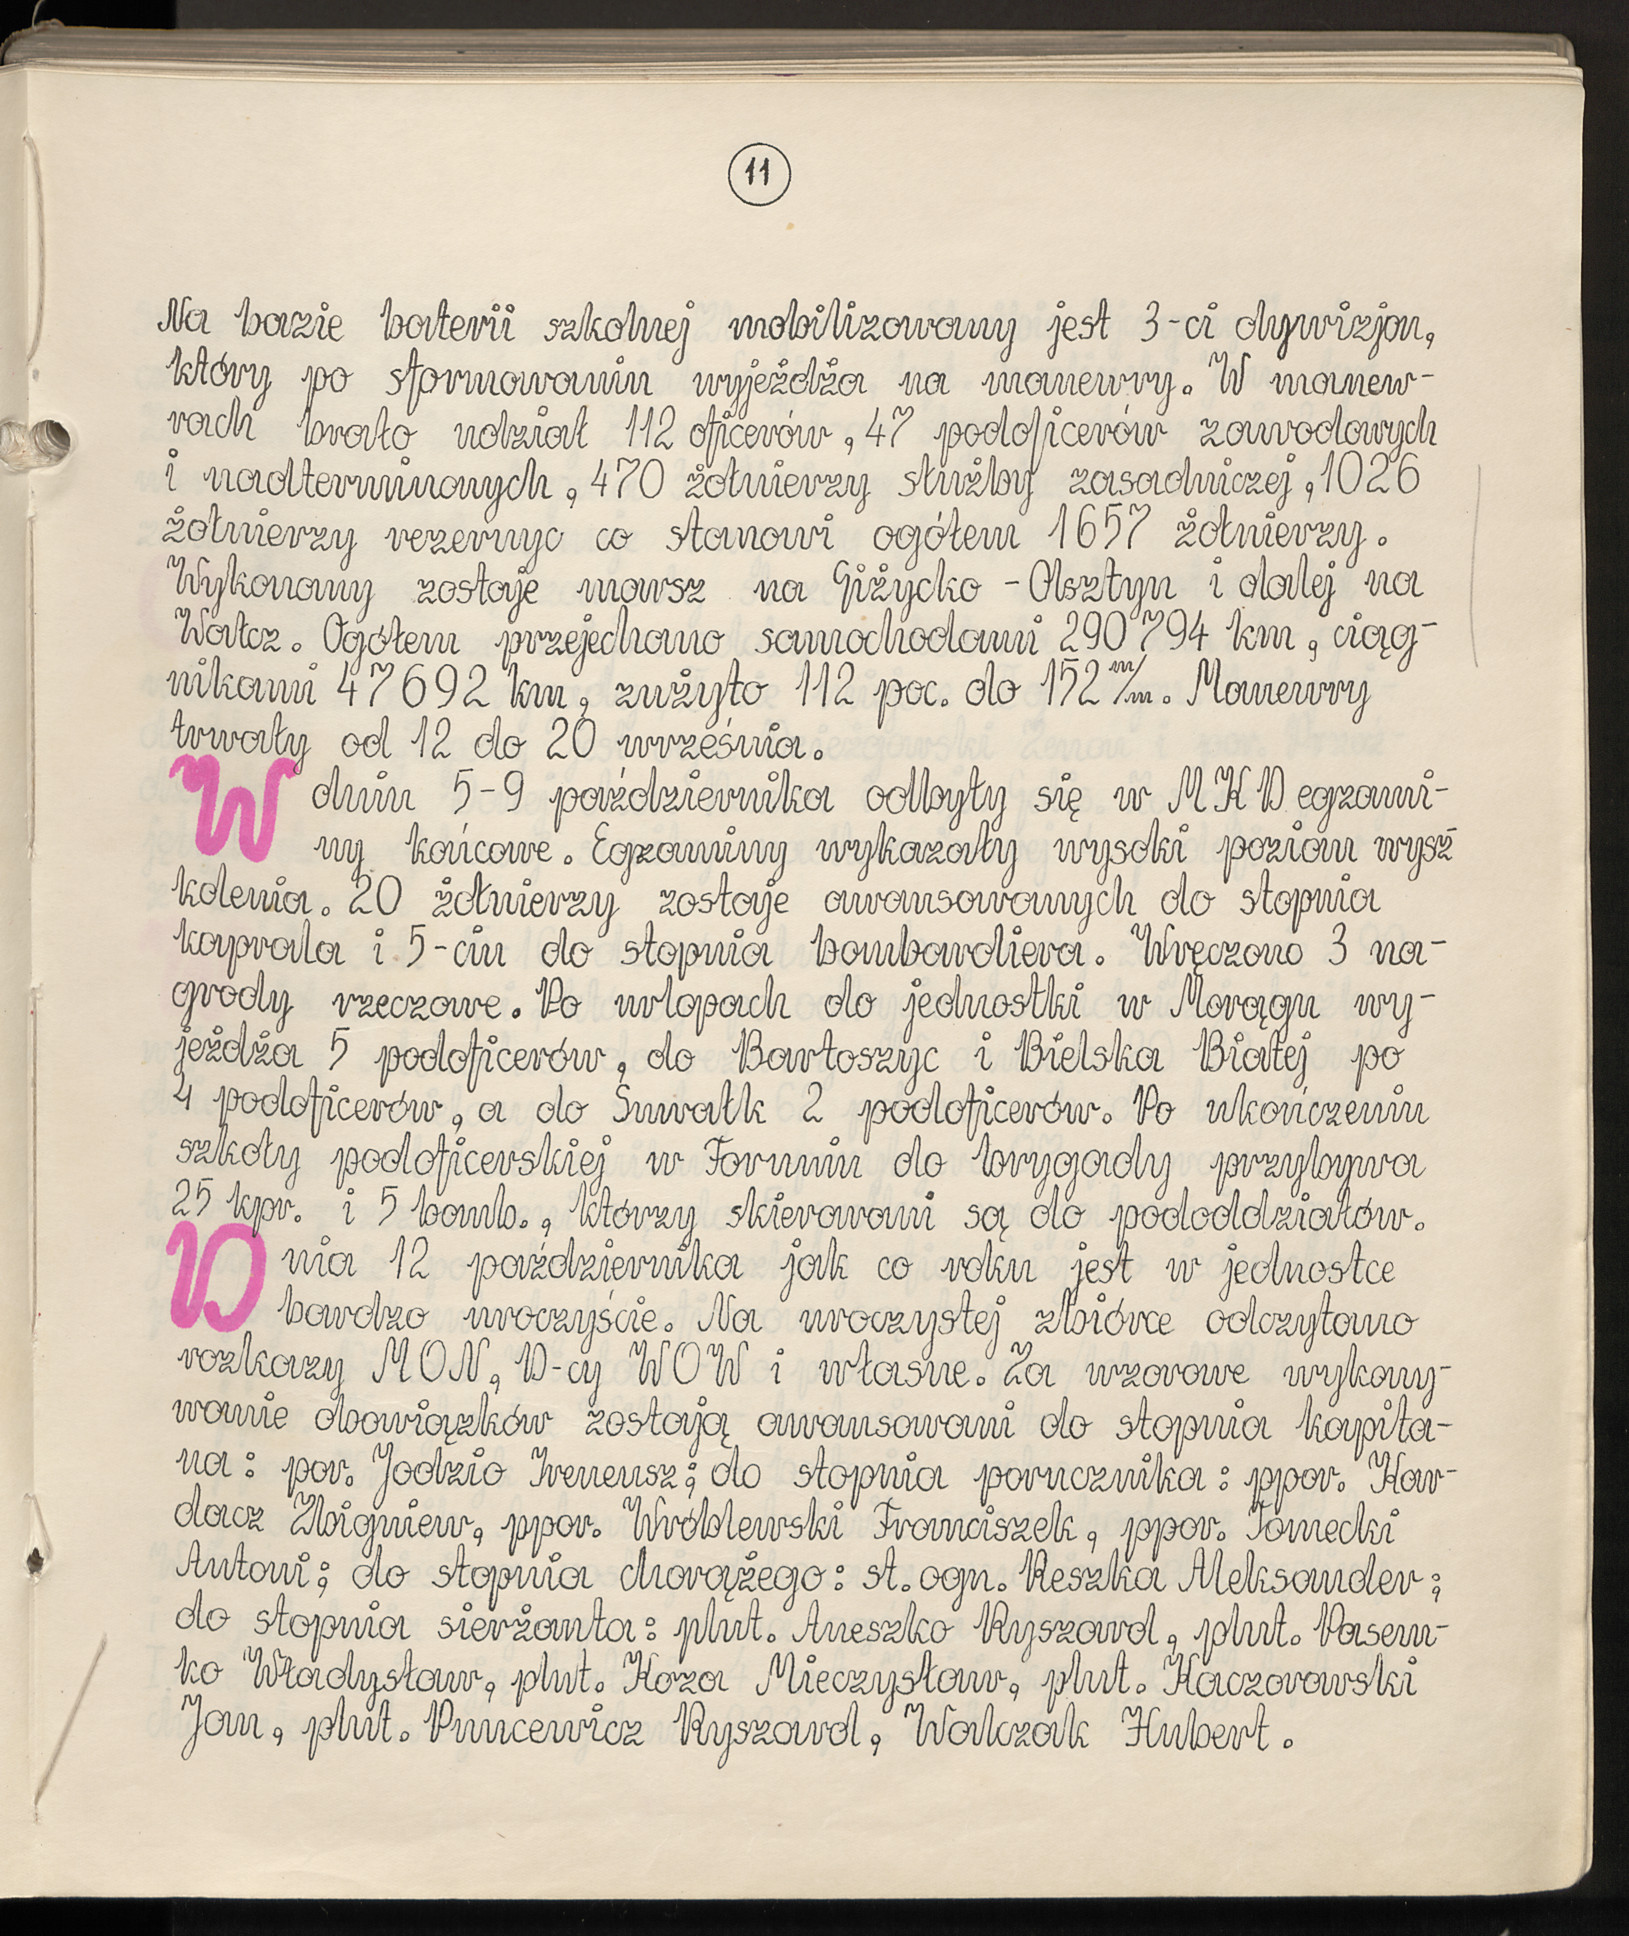 11
Na bazie baterii szkolnej mobilizowany jest 3-ci dywizjon,
który po sformowaniu wyjeżdża na manewry. W manew-
rach brało udział 112 oficerów, 47 podoficerów zawodowych
i nadterminowych, 470 żołnierzy służby zasadniczej, 1026
żołnierzy rezerwy co stanowi ogółem 1657 żołnierzy.
Wykonany zostaje marsz na Giżycko - Olsztyn i dalej na
Wałcz. Ogółem przejechano samochodami 290794 km, ciąg-
nikami 47692 km, zużyto 112 poc. do 152 m/m. Manewry
trwały od 12 do 20 września.
W dniu 5-9 października odbyły się w MKD egzami-
ny końcowe. Egzaminy wykazały wysoki poziom wysz-
kolenia. 20 żołnierzy zostaje awansowanych do stopnia
kaprala i 5-ciu do stopnia bombardiera. Wręczono 3 na-
grody rzeczowe. Po urlopach do jednostki w Morągu wy-
jeżdża 5 podoficerów, do Bartoszyc i Bielska Białej po
4 podoficerów, a do Suwałk 2 podoficerów. Po ukończeniu
szkoły podoficerskiej w Toruniu do brygady przybywa
25 kpr. i 5 bomb., którzy skierowani są do pododdziałów.
Dnia 12 października jak co roku jest w jednostce
bardzo uroczyście. Na uroczystej zbiórce odczytano
rozkazy MON, D-cy WOW i własne. Za wzorowe wykony-
wanie obowiązków zostają awansowani do stopnia kapita-
na: por. Jodzio Ireneusz; do stopnia porucznika: ppor. Kar-
dacz Zbigniew, ppor. Wróblewski Franciszek, ppor. Tomecki
Antoni; do stopnia chorążego: st. ogn. Reszka Aleksander;
do stopnia sierżanta: plut. Aneszko Ryszard, plut. Pasem-
ko Władysław, plut. Koza Mieczysław, plut. Kaczorowski
Jan, plut. Puncewicz Ryszard, Walczak Hubert.